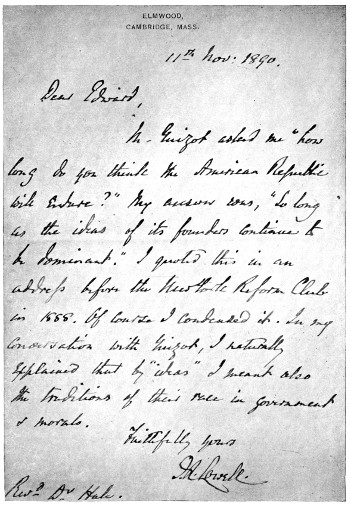 ELMWOOD,
CAMBRIDGE, MASS.
11th Nov: 1890.
Dear Edward,
M. Guizot asked me "how
long do you think the American Republic
will endure?" My answer was, "So long
as the ideas of its founders continue to
be dominant." I quoted this in an
address before the New York Reform Club
in 1888. Of course I condensed it. In my
conversation with Guizot, I naturally
explained that by "ideas" I meant also
the traditions of their race in government
& morals.
Faithfully yours
J. R. Lowell.
Revd. Dr Hale.